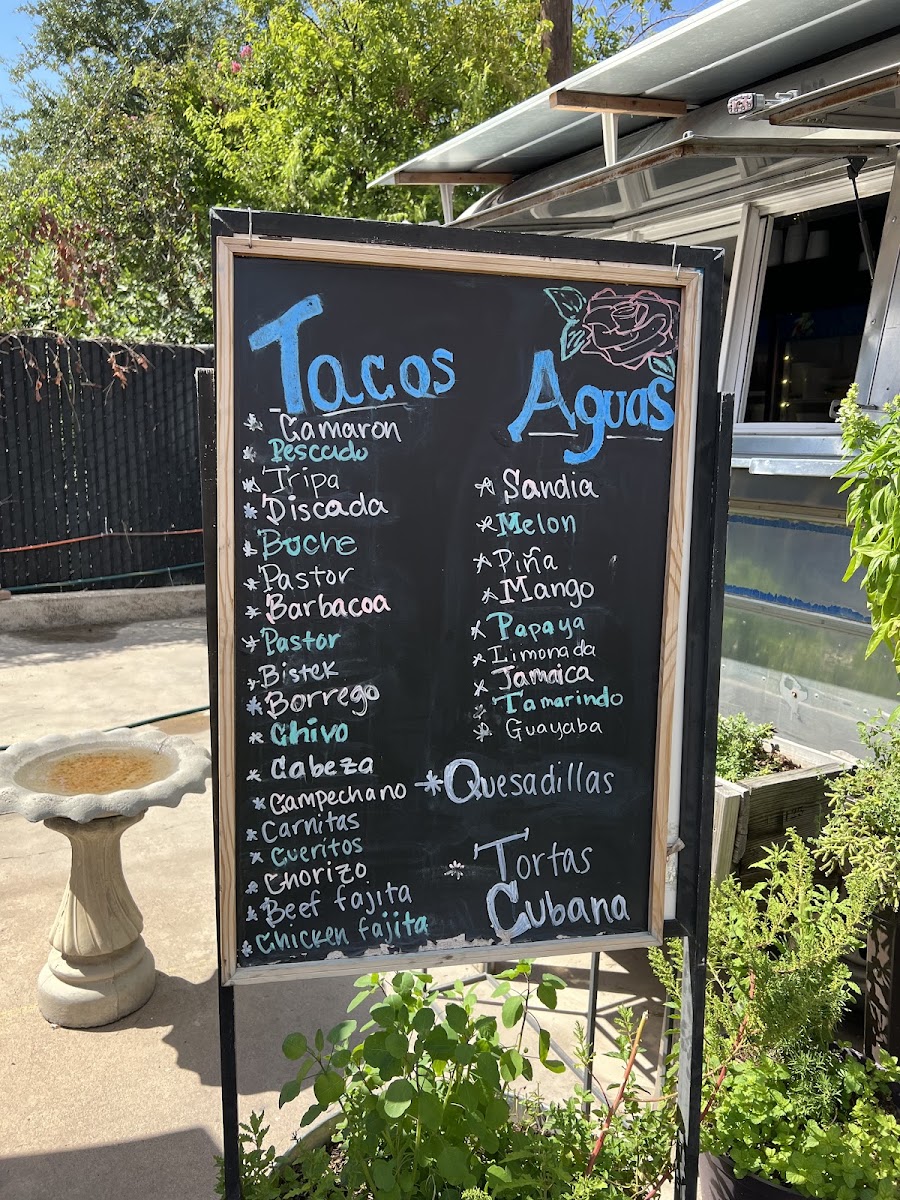 Tacos
* Camaron
* Pescado
* Tripa
* Discada
* Buche
* Pastor
* Barbacoa
* Pastor
* Bistek
* Borrego
* Chivo
* Cabeza
* Campechano
* Carnitas
* Cueritos
* Chorizo
* Beef fajita
* Chicken fajita
Aguas
* Sandia
* Melon
* Piña
* Mango
* Papaya
* Limonada
* Jamaica
* Tamarindo
* Guayaba
* Quesadillas
* Tortas
Cubana